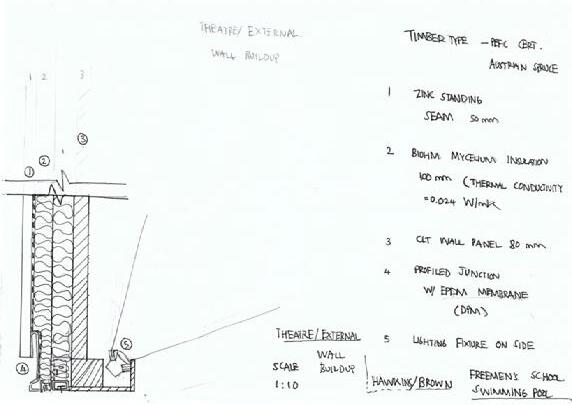 THEATRE/EXTERNAL
WALL BUILDUP
TIMBER TYPE - PEFC CERT.
AUSTRIAN SPRUCE
1 ZINC STANDING
SEAM 50mm
2 BIOHM MYCELIUM INSULATION
100 mm (THERMAL CONDUCTIVITY
=0.024 W/mK)
3 CLT WALL PANEL 80 mm
4 PROFILED JUNCTION
W/ EPDM MEMBRANE
(DPM)
5 LIGHTING FIXTURE ON SIDE
1 2 3
3
2
1
5
4
THEATRE/EXTERNAL
WALL
BUILDUP
SCALE
1:10
HAWKINS/BROWN
FREEMEN'S SCHOOL
SWIMMING POOL